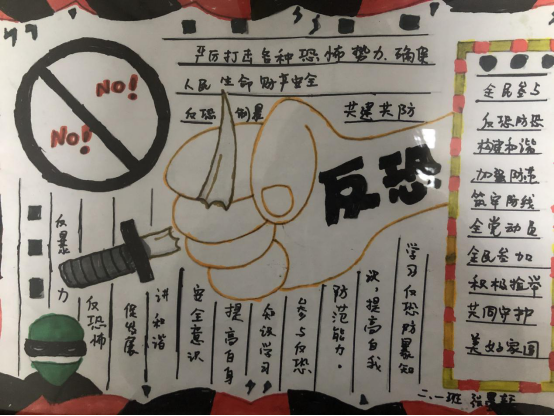 严厉打击各种恐怖势力、确保
人民 生命 财产安全
反恐 制暴 共建共防
No!
No!
反恐
反暴力
反恐怖
促发展
讲和谐
安全意识
提高自身
知识学习
参与反恐
防范能力。
识,提高自我
学习反恐防暴知
全民参与
反恐防恐
构建和谐
加强防范
筑牢防线
全党动员
全民参加
积极检举
共同守护
美好家园
二、一班